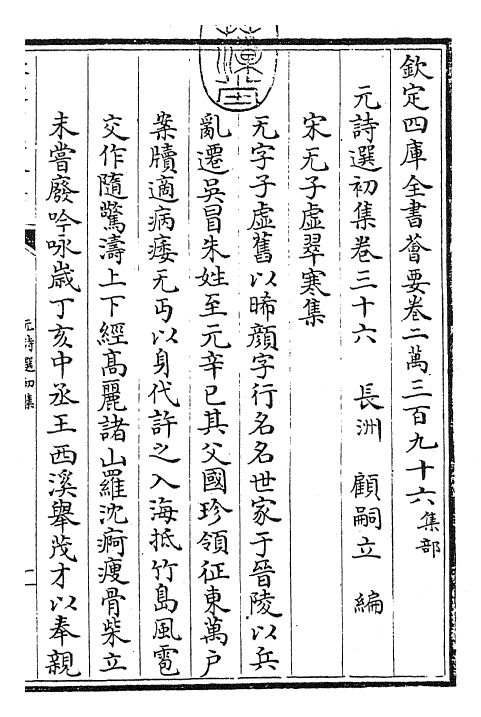 欽定四庫全書薈要卷二萬三百九十六集部
元詩選初集卷三十六　長洲　顧嗣立　編
宋无子虛翠寒集
无字子虛舊以晞顔字行名名世家于晉陵以兵
亂遷吳冒朱姓至元辛巳其父國珍領征東萬戶
案牘適病痿无丐以身代許之入海抵竹島風雹
交作隨驚濤上下經髙麗諸山羅沈痾瘦骨柴立
未嘗廢吟咏歲丁亥中丞王西溪舉茂才以奉親
元詩選初集